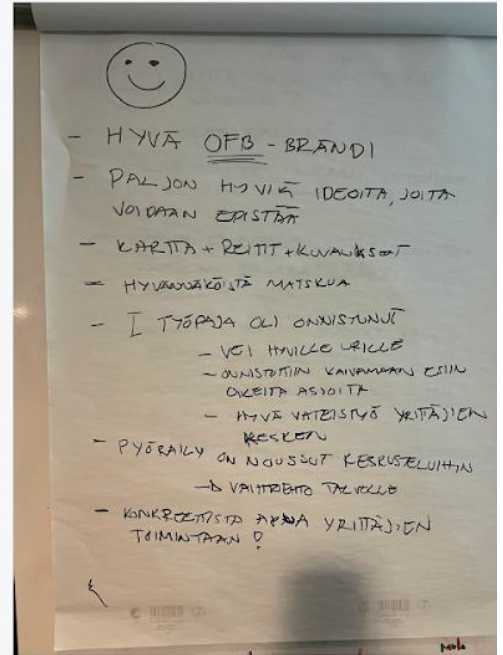 - HYVÄ OFB - BRÄNDI
- PALJON HYVIÄ IDEOITA, JOITA
VOIDAAN EDISTÄÄ
- KARTTA + REITIT + KUVAUKSET
- HYVÄNNÄKÖISTÄ MATSKUA
- I TYÖPAJA OLI ONNISTUNUT
- VEI HYVILLE URILLE
- ONNISTUTTIIN KAIVAMAAN ESIIN
OIKEITA ASIOITA
- HYVÄ YHTEISTYÖ YRITTÄJIEN
KESKEN
- PYÖRÄILY ON NOUSSUT KESKUSTELUIHIN
→ VAIHTOEHTO TALVELLE
- KONKREETTISTA APUA YRITTÄJIEN
TOIMINTAAN !